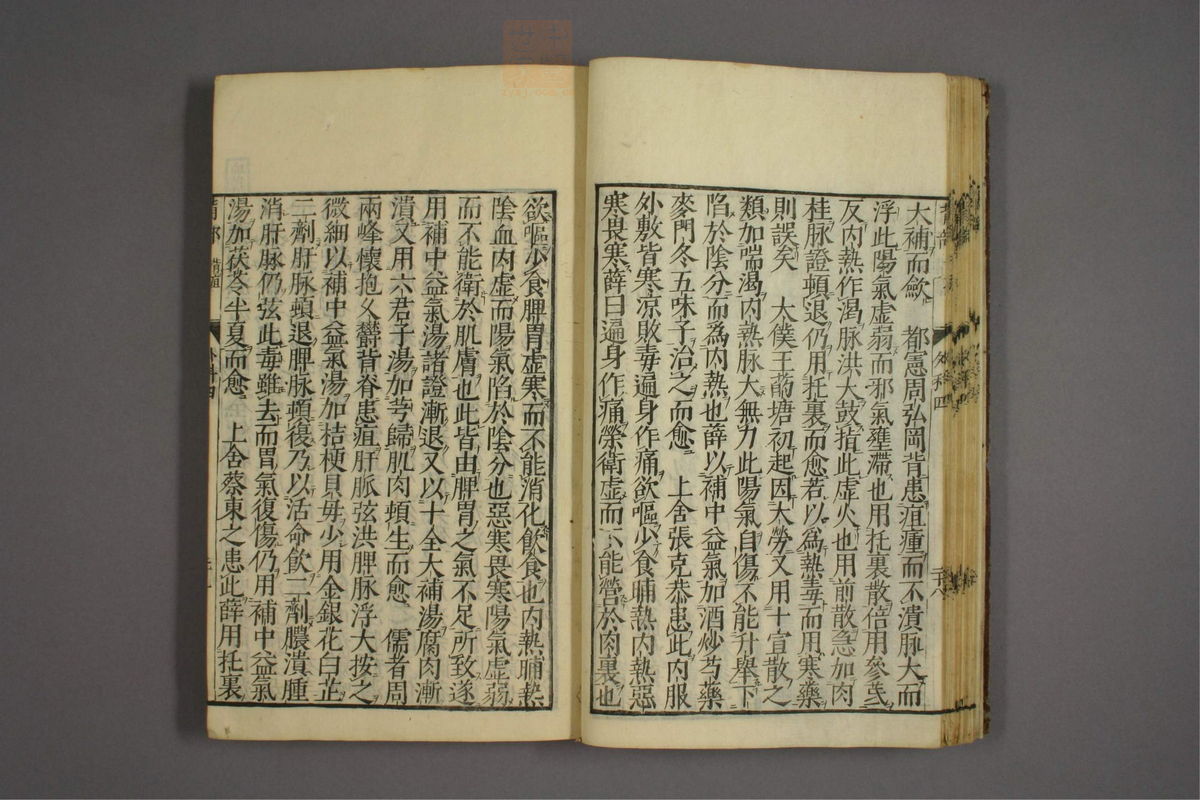 大補而歛　都憲周弘岡背患疽腫而不潰脉大而
浮此陽氣虚弱而邪氣壅滞也用托裏散倍用參茋
反内熱作渴脉洪大鼓指此虚火也用前散急加肉
桂脉證頓退仍用托裏而愈若以為熱毒而用寒藥
則誤矣　太僕王蒭塘初起因大勞又用十宣散之
類加喘渴内熱脉大無力此陽氣自傷不能升舉下
陷於陰分而為内熱也薛以補中益氣加酒炒芍藥
麥門冬五味子治之而愈　上舍張克恭患此内服
外敷皆寒凉敗毒遍身作痛欲嘔少食晡熱内熱惡
寒畏寒薛曰遍身作痛榮衛虚而不能營於肉裏也
欲嘔少食脾胃虚寒而不能消化飲食也内熱晡熱
陰血内虚而陽氣陷於陰分也惡寒畏寒陽氣虚弱
而不能衛於肌膚也此皆由脾胃之氣不足所致遂
用補中益氣湯諸證漸退又以十全大補湯腐肉漸
潰又用六君子湯加芎歸肌肉頓生而愈　儒者周
兩峰懷抱久欝背脊患疽肝脈弦洪脾脉浮大按之
微細以補中益氣湯加桔梗貝毋少用金銀花白芷
二劑肝脉頓退脾脉頓復乃以活命飲二劑膿潰腫
消肝脉仍弦此毒雖去而胃氣復傷仍用補中益氣
湯加茯苓半夏而愈　上舍蔡東之患此薛用托裏
外科四